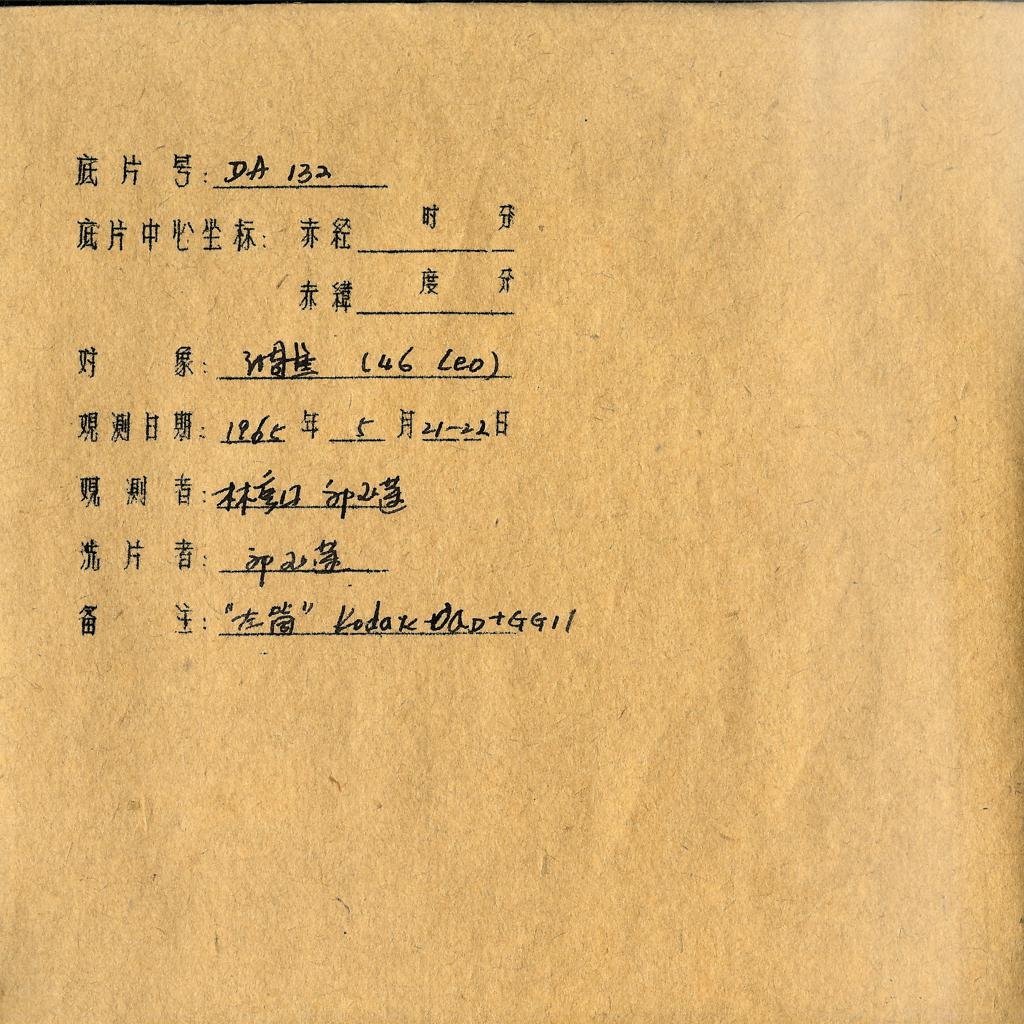 底片号: DA 132
底片中心坐标: 赤经 时 分
赤緯 度 分
对象: 调焦 (46 Leo)
观测日期: 1965 年 5 月 21-22 日
观测者:
洗片者:
备注: "左筒" Kodak OaD+GG11